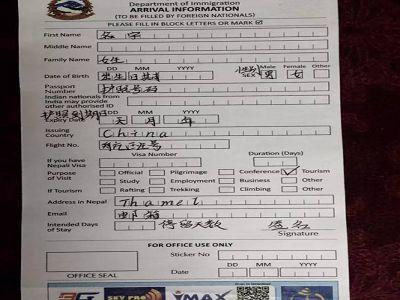 Department of Immigration
ARRIVAL INFORMATION
(TO BE FILLED BY FOREIGN NATIONALS)
PLEASE FILL IN BLOCK LETTERS OR MARK ☑
First Name 名字
Middle Name
Family Name 女生
DD MM YYYY 性别 Male Female Other
Date of Birth 出生日 SEX 男 女
Passport Number 护照号码
Indian nationals from India may provide other authorised ID
护照到期日 DD MM YYYY
Expiry Date 天 月 年
Issuing Country China
Flight No. 号
Visa Number Duration (Days)
If you have Nepali Visa
Purpose of Visit Official Pilgrimage Conference ✓ Tourism
Study Employment Business Other
If Tourism Rafting Trekking Climbing Other
Address in Nepal Thamel
Email 邮箱
Intended Days of Stay 停留天数 签名
Signature
FOR OFFICE USE ONLY
Sticker No
DD MM YYYY
OFFICE SEAL Date
SKY PRO IMAX